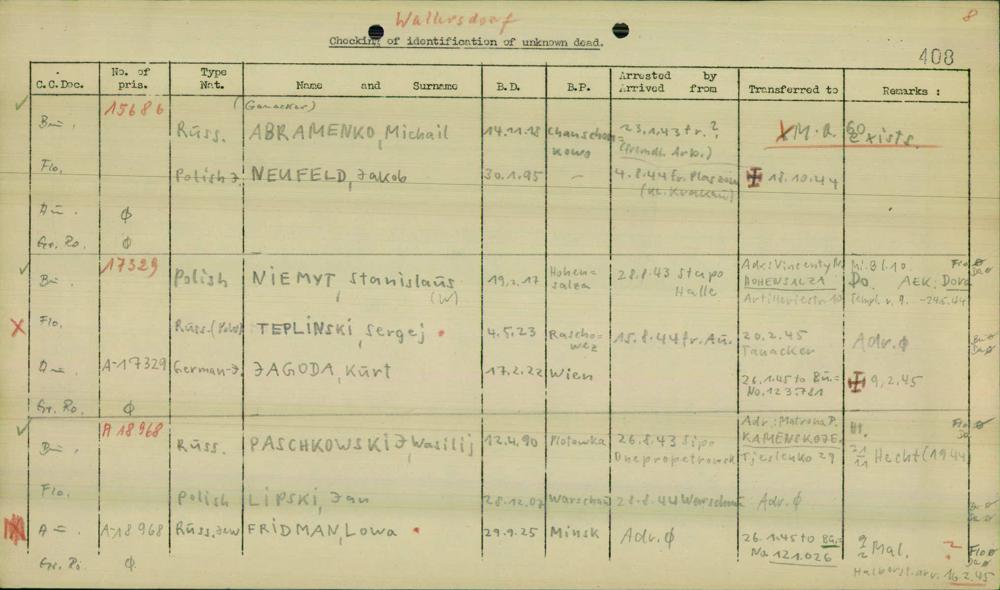 Wallersdorf
8
Checking of identification of unknown dead.
408
C.C.Doc. No. of pris. Type Nat. Name and Surname B.D. B.P. Arrested by Arrived from Transferred to Remarks :
15686 (Ganacker)
Bu. Russ. ABRAMENKO, Michail 14.11.18 23.1.43 fr. ? exists.
Flo. Polish J. NEUFELD, Jakob 30.1.95 – 4.8.44 fr. Plaszow (Kl. Krakau) 18.10.44
Au. ϕ
Gr. Ro. ϕ
17329
Bu. Polish NIEMYT, Stanislaus (W) 19.2.17 Hohensalza 28.8.43 Stapo Halle Adr: Vincenty N. HOHENSALZA Artilleriestr. Mi. Bl. 10. Do. AEK: Dora
Flo. Russ. TEPLINSKI, Sergej 4.5.23 Raschowez 15.8.44 fr. Au. 20.2.45 Ganacker Adr. ϕ
Au. A-17329 German-J. JAGODA, Kurt 17.2.22 Wien 26.1.45 to Bu.= No. 123781 9.2.45
Gr. Ro. ϕ
A 18968
Bu. Russ. PASCHKOWSKIJ, Wasilij 12.4.90 Plotowka 26.8.43 Sipo Dnepropetrowsk Adr.: Matrona P. KAMENSKOJE, Tjeslenko 29 Hecht (1944
Flo. Polish LIPSKI, Jan 28.12.07 Warschau 28.8.44 Warschau Adr. ϕ
Au. A-18968 Russ. Jew FRIDMAN, Lowa 29.9.25 Minsk Adr. ϕ 26.1.45 to Bu.= No. 121026 Mal. ?
Gr. Ro. ϕ Halberst. arr. 16.2.45